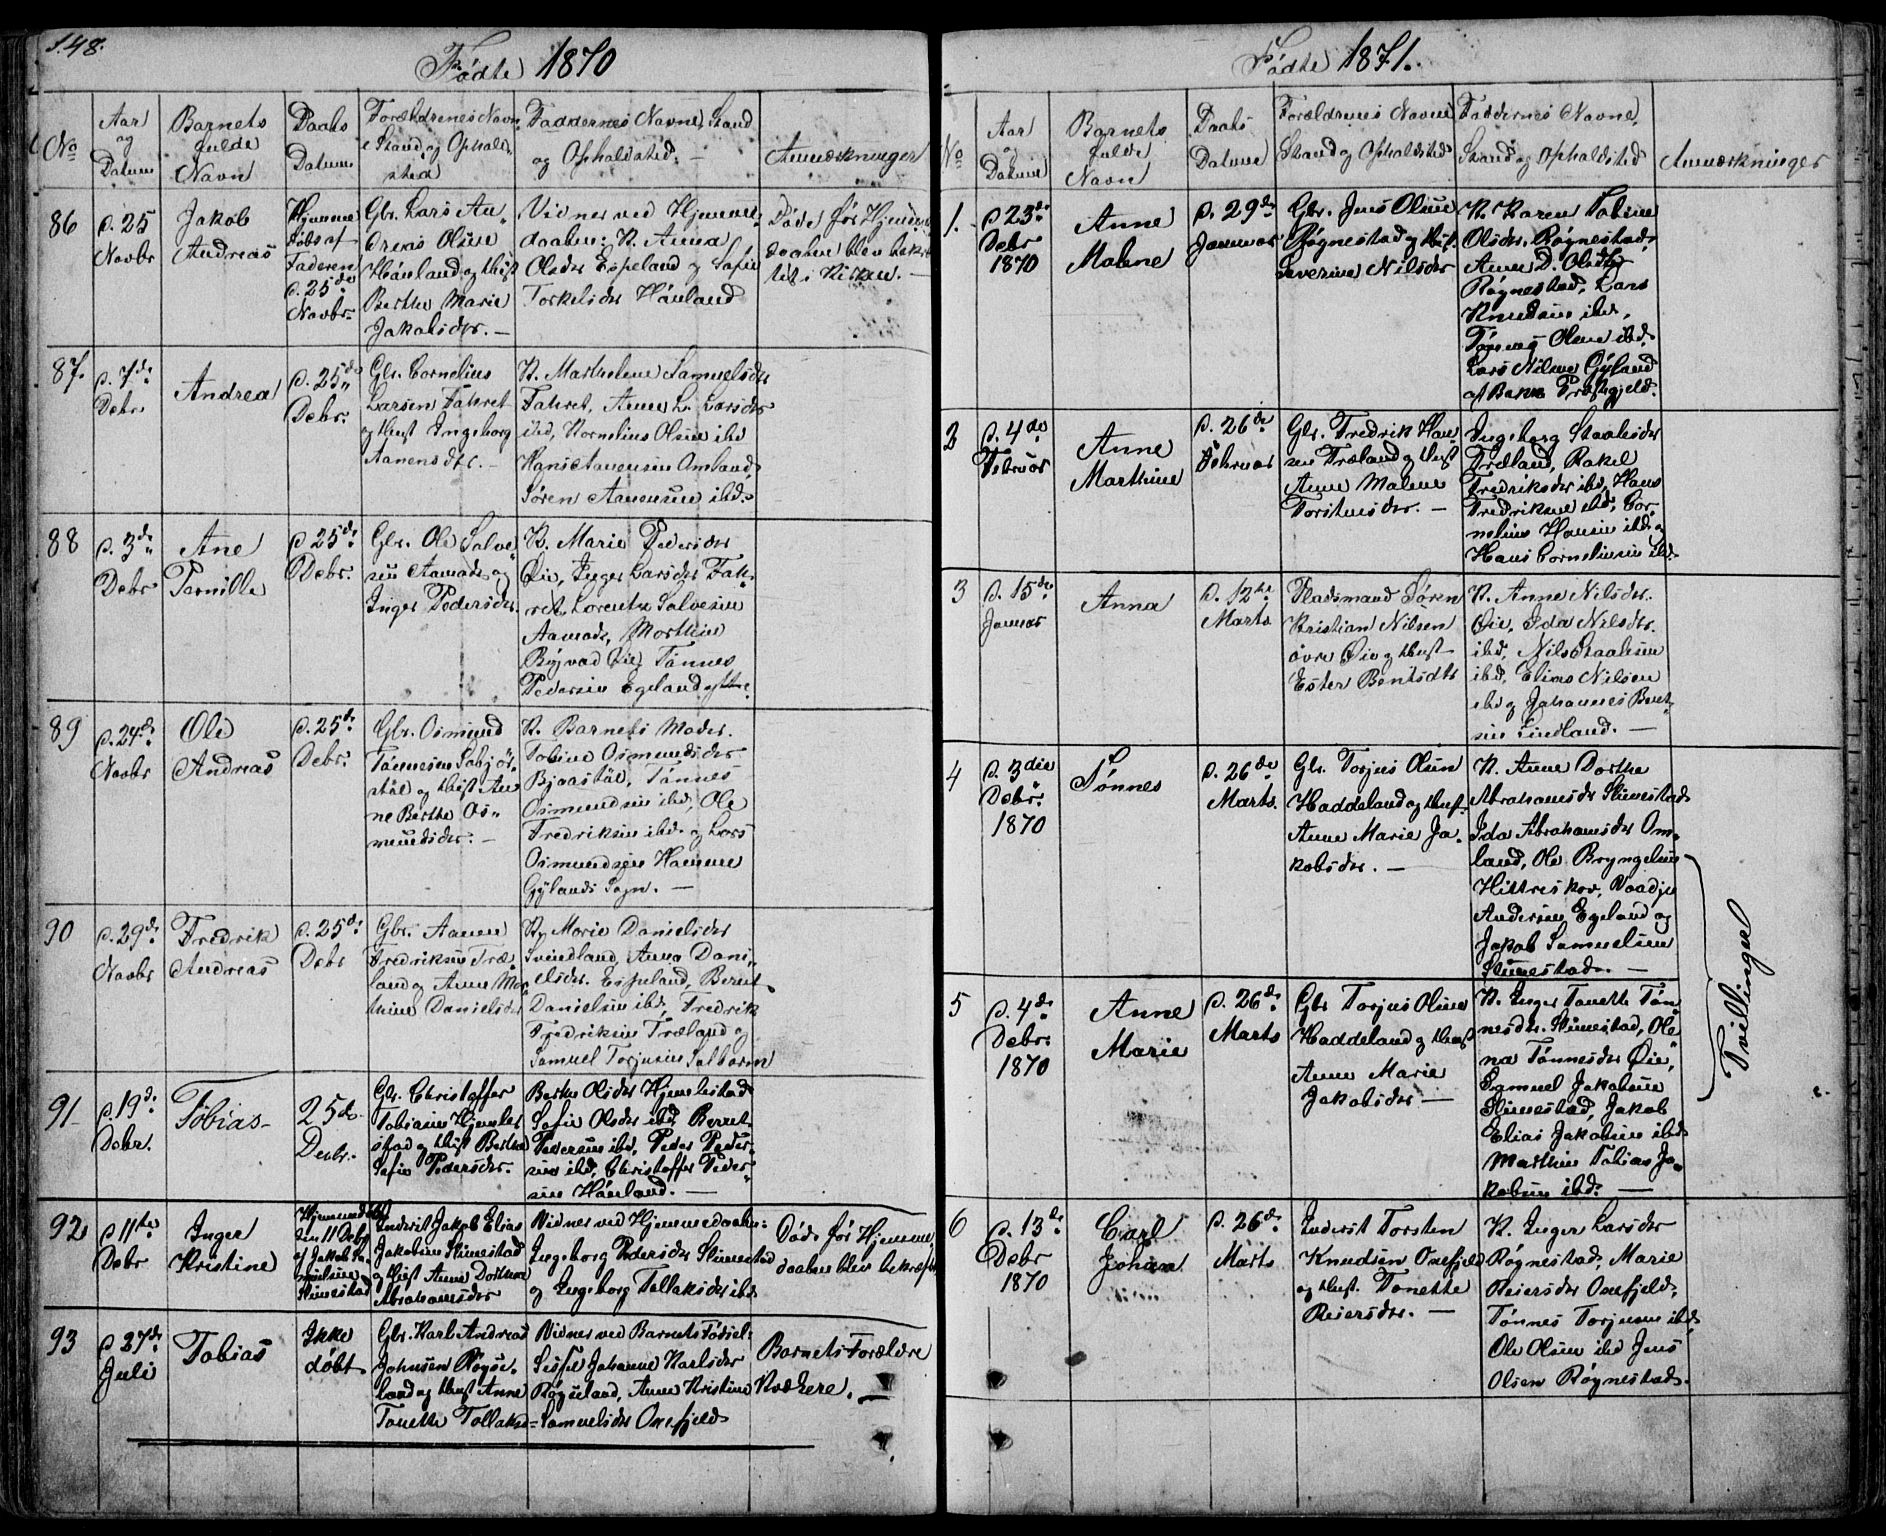 S. 48.
Fødte 1870
No
Aar og Datum
Barnets fulde Navn
Daabs Datum
Forældrenes Navn Stand og Opholdssted
Faddernes Navne, Stand og Opholdssted.
Anmærkninger
86
d. 25 Novbr
Jakob Andreas
Hjemme døbt af Faderen d. 25de Novbr.
Gbr. Lars Andreas Olsen Hånland og Hust Berthe Marie Jakobsdtr. —
Vidner ved Hjemmedaaben: K. Anna Olsdtr Espeland og Sofie Torkelsdtr Hånland
Døde før Hjemmedaaben blev bekræftet i Kirken. —
87.
d. 7de Debr
Andrea
d. 25de Debr.
Gbr. Cornelius Larsen Fahret og Hust Ingeborg Aanensdtr. —
K. Marthelene Samuelsdtr Fahret, Anne L. Larsdtr ibd, Kornelius Olsen ibd Hans Aanensen Omland, Søren Aanensen ibd.
88
d. 3de Debr
Ane Pernille
d 25de Debr.
Gbr. Ole Salvesen Aamodt og Inger Pedersdtr.
K. Marie Pedersdtr Øie, Inger Larsdtr Fahret, Lorentz Salvesen Aamodt, Morthen Røyvad Øie, Tønnes Pedersen Egeland yttre.
89
d. 24de Novbr
Ole Andreas
d. 25de Debr.
Gbr. Osmund Tønnesen Sabjørstøl og Hust Anne Berthe Osmundsdtr. —
K. Barnets Moder. Tobine Osmundsdtr Bjaastøl, Tønnes Osmundsen ibd, Ole Fredriksen ibd og Lars Osmundsen Hamme Gylands Sogn. —
90
d. 29de Novbr
Fredrik Andreas
d. 25de Debr
Gbr. Aanen Fredriksen Træland og Anne Marthine Danielsdtr
K. Marie Danielsdtr Svindland, Anna Danielsdtr. Espeland, Berent Danielsen ibd, Fredrik Fredriksen Træland og Samuel Torjusen Salbarm
91
d. 19de Debr.
Tobias
25de Decbr.
Gbr. Christoffer Tobiasen Hjemlestad og Hust Berthe Sofie Pedersdtr.
Berthe Olsdtr Hjemlestad Sofie Olsdtr ibd, Berent Pedersen ibd, Peder Pedersen ibd, Christoffer Pedersen Hånland. —
92
d 11te Debr
Inger Kristine
Hjemmedøbt den 11 Debr af Jakob Samuelsen Slimestad
Inderst Jakob Elias Jakobsen Slimestad og Hust Anne Dorthea Abrahamsdtr
Vidner ved Hjemmedaaben: Ingeborg Pedersdtr Slimestad og Ingeborg Tollaksdtr ibd.
Døde før Hjemmedaaben blev bekræft
93
d 27de Juli
Tobias
Ikke døbt
Gbr. Karl Andreas Johnsen Røyseland og Hust Anne Tonette Tollaks
Vidner ved Barnets Fødsel: Sissel Johanne Karlsdtr Røyseland, Anne Kristine Samuelsdtr Oxefjeld
Barnets Forældre Kvækere. —
Fødte 1871.
No
Aar og Datum
Barnets fulde Navn
Daabs Datum
Forældrenes Navne Stand og Opholdsted
Faddernes Navne, Stand og Opholdsted
Anmærkninger
1.
d 23de Debr 1870
Anne Malene
d. 29de Januar
Gbr. Jens Olsen Røgnestad og Hust. Severine Nilsdtr
K. Karen Tobine Olsdtr. Røgnestad, Anne D. Olsdtr Røgnestad, Lars Knudsen ibd, Tønnes Olsen ibd. Lars Nilsen Gyland af Bakke Præstegjeld.
2
d. 4de Februar
Anne Marthine
d. 26de Februar
Gbr. Fredrik Hansen Træland og Hust Anne Malene Torstensdtr. —
Ingeborg Staalesdtr Træland, Rakel Fredriksdtr ibd, Hans Fredriksen ibd, Cornelius Hansen ibd og Hans Corneliusen ibd.
3
d. 15de Januar
Anna
d. 12te Marts
Pladsmand Søren Kristian Nilsen øvre Øie og Hust Ester Bentsdtr
K. Anne Nilsdtr. Øie, Ida Nilsdtr. ibd, Nils Staalesen ibd, Elias Nilsen ibd og Johannes Bentsen Lindland. —
4
d. 3die Debr. 1870
Tønnes
d. 26de Marts.
Gbr. Torjus Olsen Haddeland og Hust. Anne Marie Jakobsdtr. —
K. Anne Dorthe Abrahamsdtr Slimestad Ida Abrahamsdtr Omland, Ole Bryngelsen Hittreskov, Vaadje Andersen Egeland og Jakob Samuelsen Slimestad. —
5
d. 4de Debr. 1870
Anne Marie
d. 26de Marts
Gbr Torjus Olsen Haddeland og Hust Anne Marie Jakobsdtr —
K. Inger Tonette Tønnesdtr. Slimestad, Olena Tønnesdtr Øie, Samuel Jakobsen Slimestad, Jakob Elias Jakobsen ibd Mathias Tobias Jakobsen ibd. —
Tvillinger
6
d. 13de Debr 1870
Carl Johan
d. 26de Marts
Inderst Torsten Knudsen Oxefjeld og Hust. Tonette Reiersdtr. —
K. Inger Larsdtr Røgnestad, Marie Reiersdtr Oxefjeld, Tønnes Torjusen ibd, Ole Olsen ibd Jens Olsen Røgnestad.